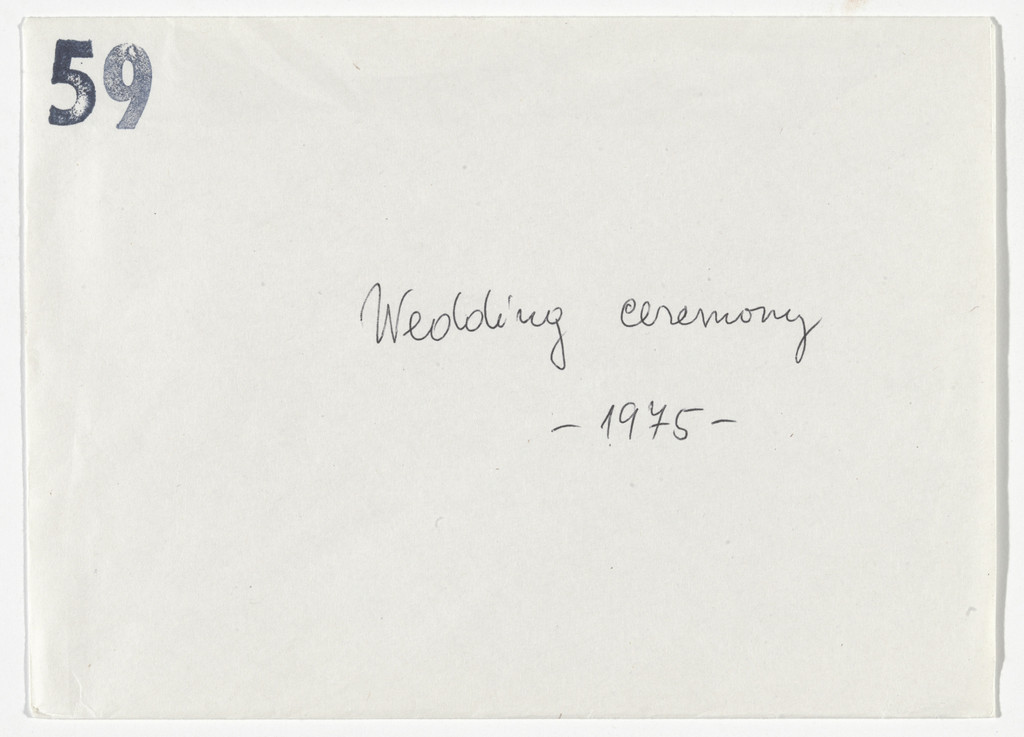 59
Wedding ceremony
- 1975 -